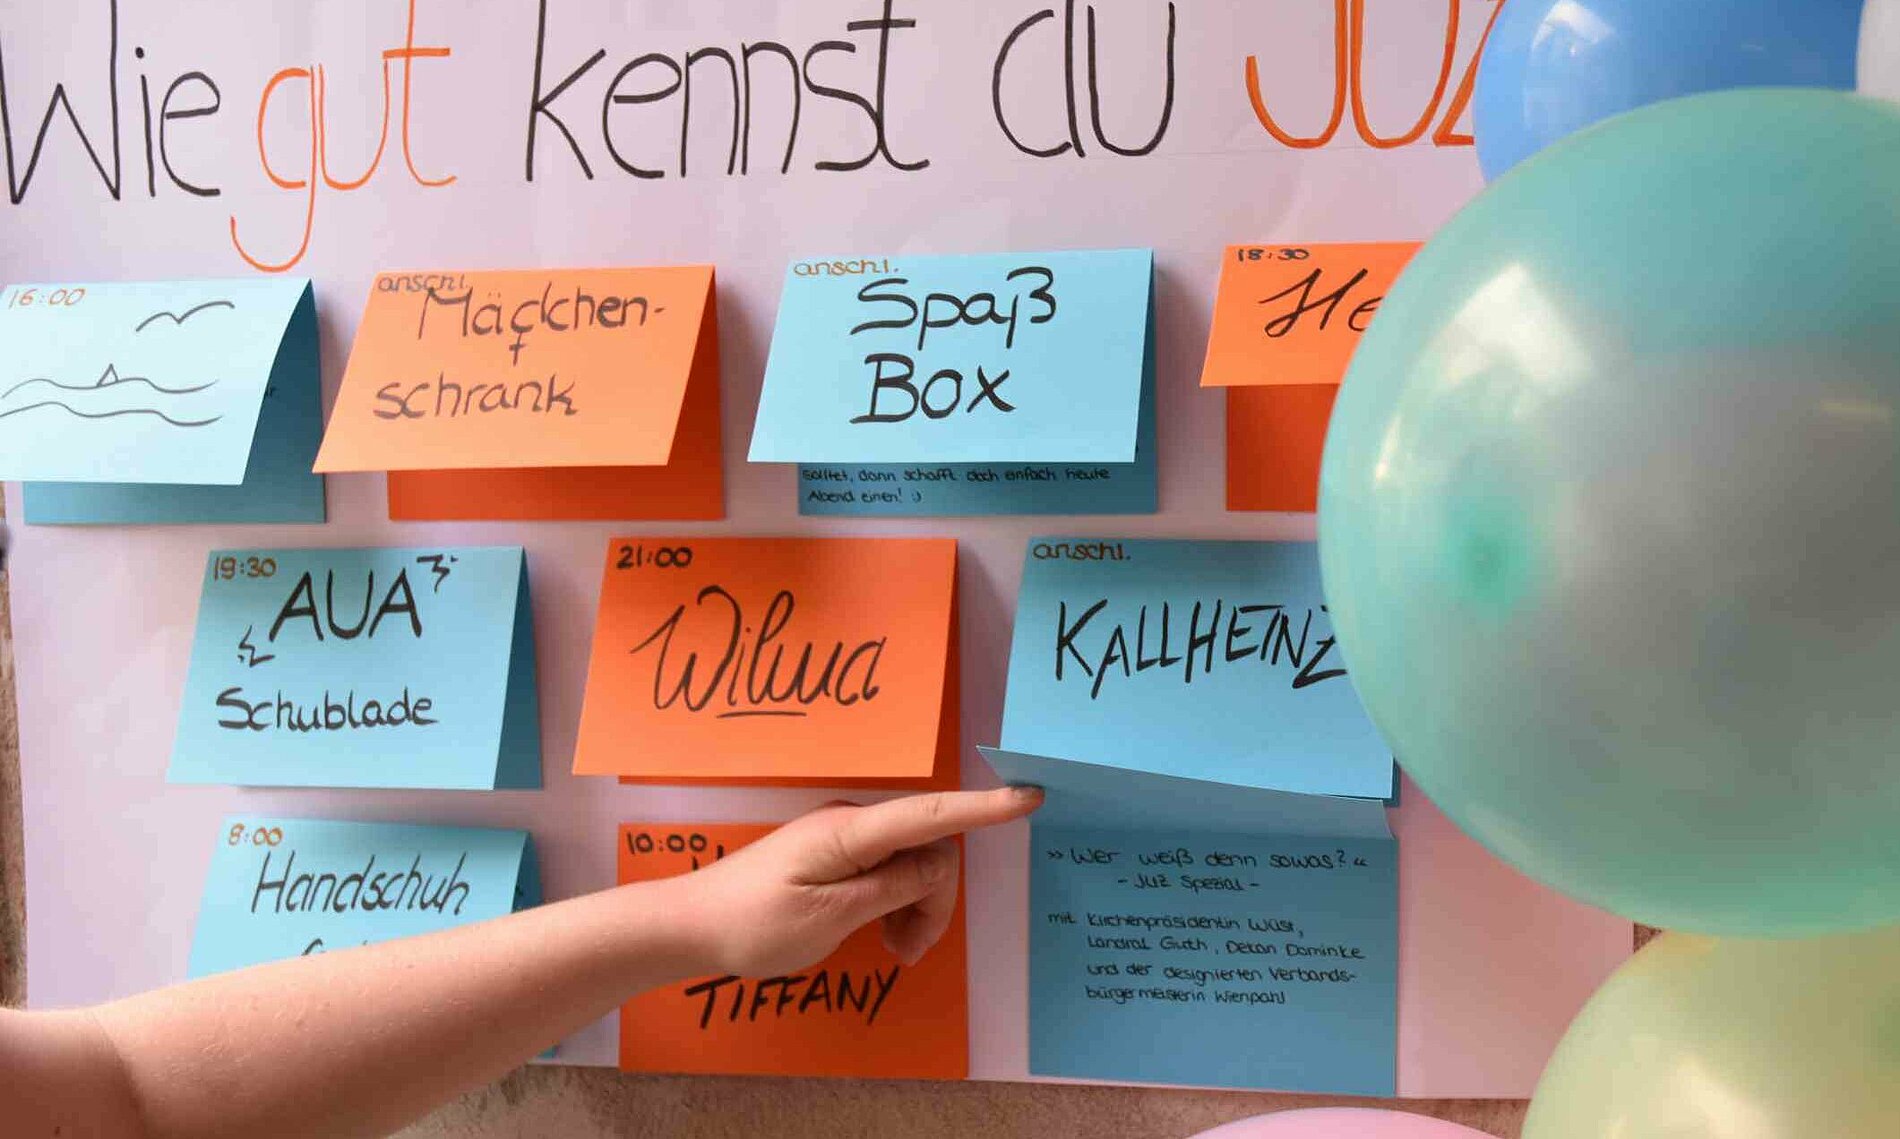 Wie gut kennst du JUZ
16:00
anschl.
Mädchen-
schrank
anschl.
Spaß
Box
solltet, dann schafft doch einfach heute
Abend einen! :)
18:30
He
19:30
AUA
Schublade
21:00
Wilma
anschl.
KALLHEINZ
8:00
Handschuh
10:00
TIFFANY
»Wer weiß denn sowas?«
- JUZ Spezial -
mit Kirchenpräsidentin Wüst,
Landrat Guth, Dekan Dominke
und der designierten Verbands-
bürgermeisterin Wienpahl